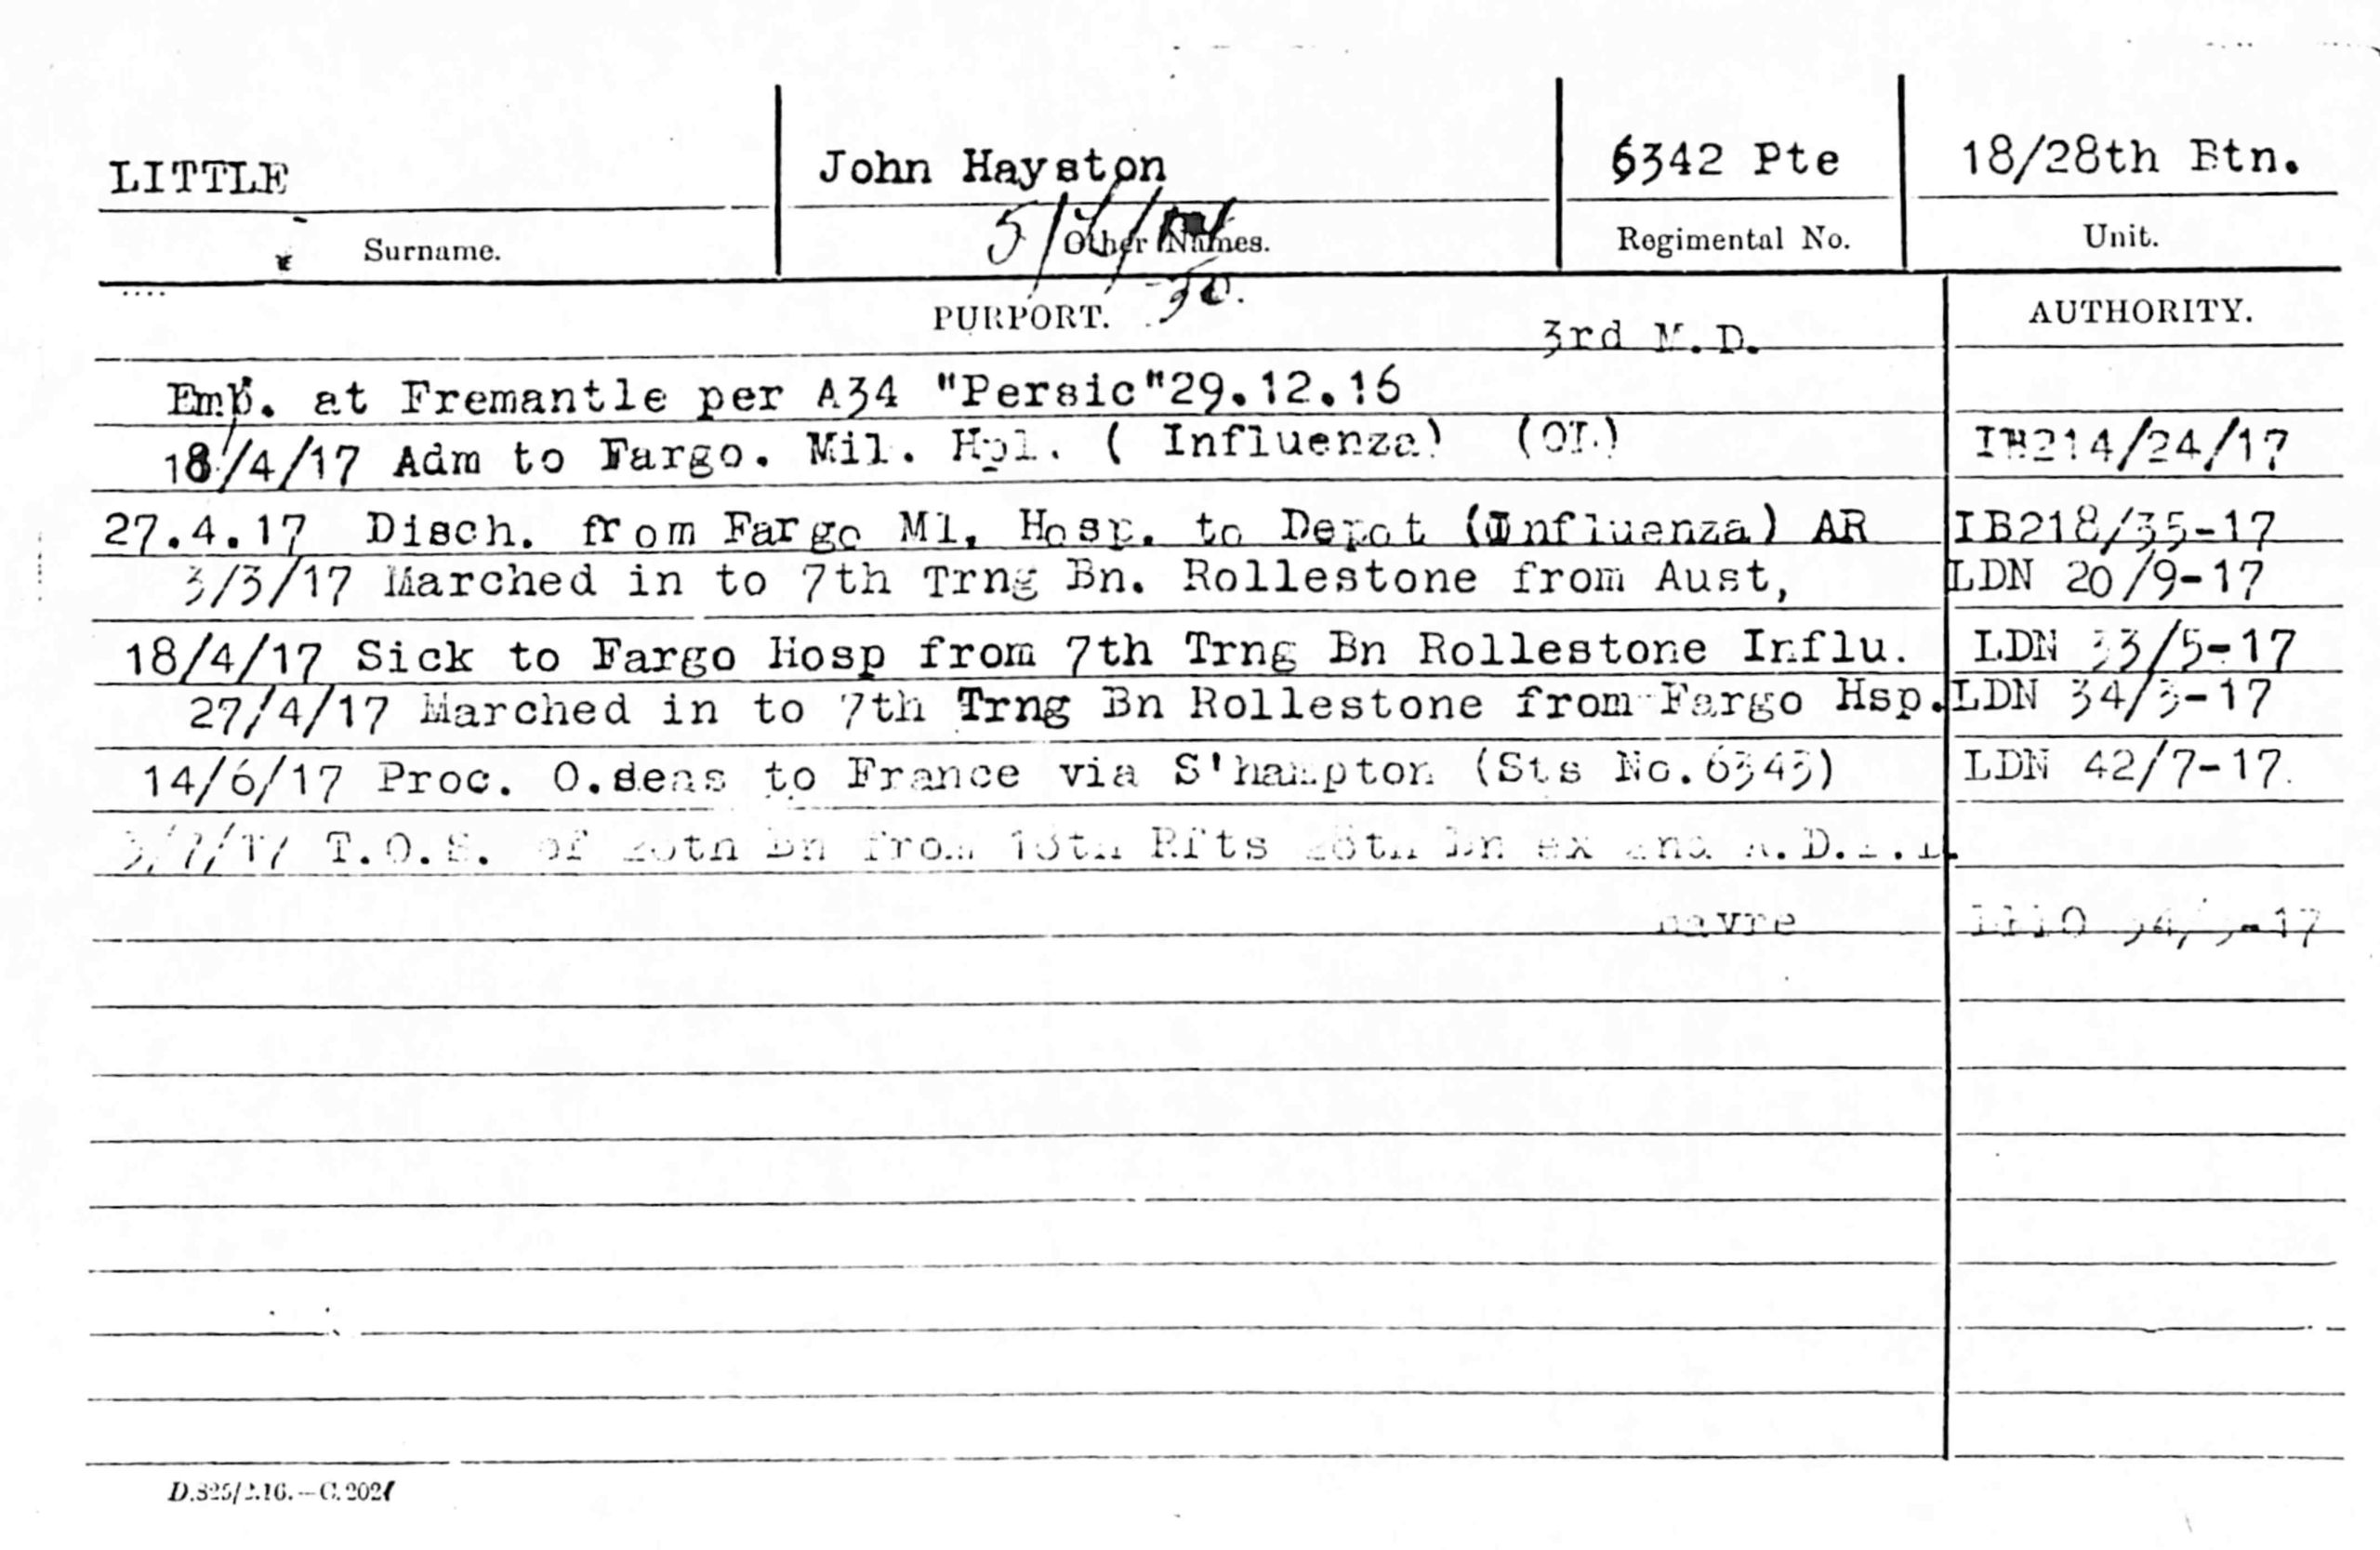 LITTLE John Hayston 6342 Pte 18/28th Btn.
Surname. Other Names. Regimental No. Unit.
PURPORT. 30. AUTHORITY.
3rd M.D.
Emb. at Fremantle per A34 "Persic"29.12.16
18/4/17 Adm to Fargo. Mil. Hpl. ( Influenza) (OL) IB214/24/17
27.4.17 Disch. from Fargo Ml, Hosp. to Depot (Influenza) AR IB218/35-17
3/3/17 Marched in to 7th Trng Bn. Rollestone from Aust, LDN 20/9-17
18/4/17 Sick to Fargo Hosp from 7th Trng Bn Rollestone Influ. LDN 33/5-17
27/4/17 Marched in to 7th Trng Bn Rollestone from Fargo Hsp. LDN 34/3-17
14/6/17 Proc. O.seas to France via S'hampton (Sts No.6343) LDN 42/7-17
3/7/17 T.O.S. of 28th Bn from Rfts 28th Bn ex 2nd A.D.
Havre
D.325/2.16.—C.2021